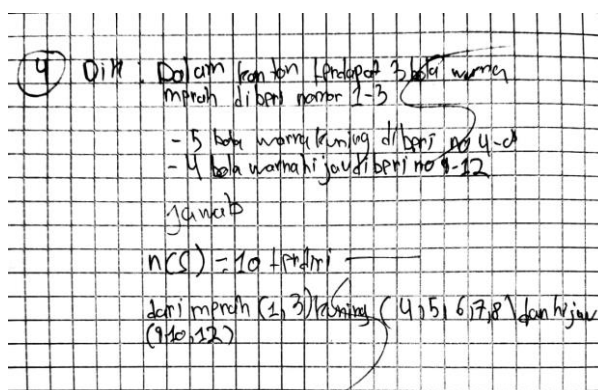 4 Dik : Dalam kanton terdapat 3 bola warna
merah diberi nomor 1-3
- 5 bola warna kuning diberi no 4-8
- 4 bola warna hijau diberi no 9-12
jawab
n(S) = 10 terdiri
dari merah (1, 3) kuning (4,5,6,7,8) dan hijau
(9,10,12)